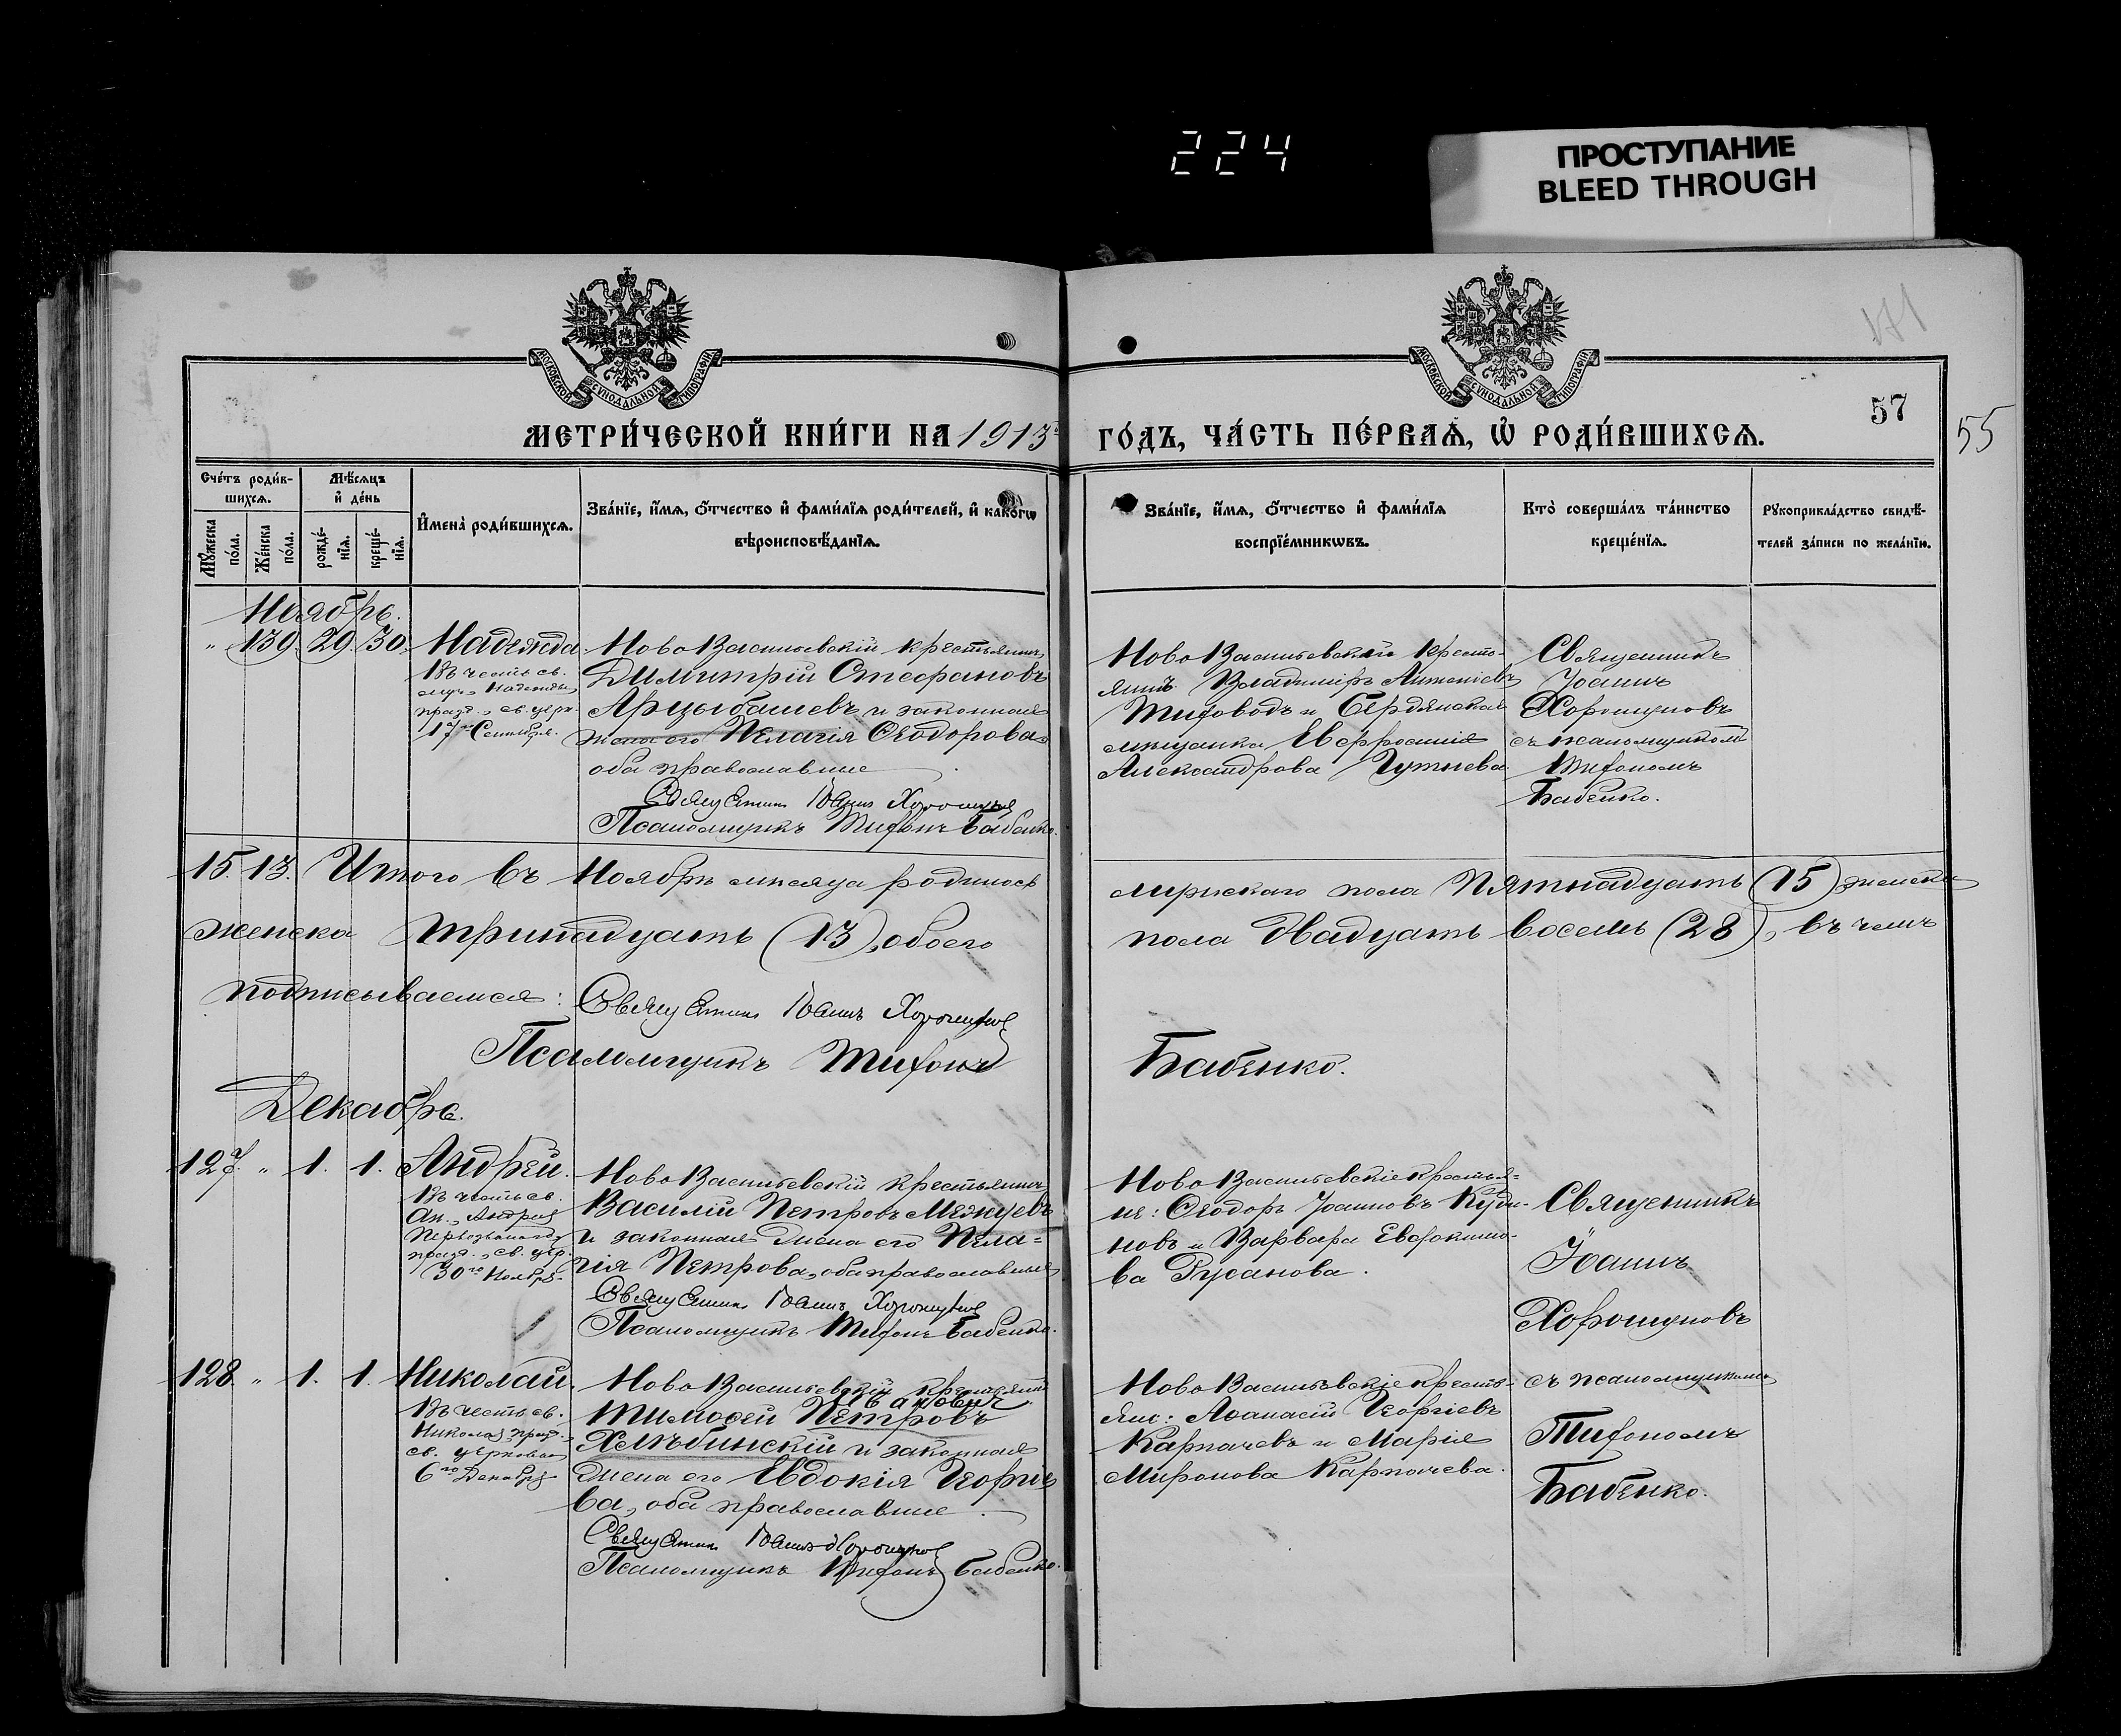 224
ПРОСТУПАНИЕ
BLEED THROUGH
171
МОСКОВСКОЙ СѴНОДАЛЬНОЙ ТИПОГРАФІИ
МОСКОВСКОЙ СѴНОДАЛЬНОЙ ТИПОГРАФІИ
57
55
МЕТРИ́ЧЕСКОЙ КНИ́ГИ НА 1913 ГО́ДЪ, ЧА́СТЬ ПЕ́РВАѦ, Ѡ҆ РОДИ́ВШИХСѦ.
Счéтъ роди́в-
шихсѧ.
Мѣ́сѧцъ
и҆ де́нь
Мꙋ́жеска
по́ла.
Же́нска
по́ла.
рожде́-
нїѧ.
креще́-
нїѧ.
И҆мена̀ роди́вшихсѧ.
Зва́нїе, и҆́мѧ, ѻ҆́тчество и҆ фами́лїѧ роди́телей, и҆ како́гѡ
вѣроисповѣ́данїѧ.
Зва́нїе, и҆́мѧ, ѻ҆́тчество и҆ фами́лїѧ
воспрїе́мникѡвъ.
Кто̀ соверша́лъ та́инство
креще́нїѧ.
Рꙋкоприкла́дство свидѣ́-
телей за́писи по жела́нїю.
Ноябрь.
" 139. 29. 30. Надежда.
Въ честь св.
муч. Надежды
празд., св. церк.
17го Сентября.
Ново Васильевскій крестьянинъ
Димитрій Стефановъ
Арцыбашевъ и законная
жена его Пелагія Ѳеодорова,
оба православные
Священникъ Іоаннъ Хорошуновъ
Псаломщикъ Тихонъ Бабенко.
Ново Васильевскій кресть-
янинъ Владиміръ Антоніевъ
Тифоводъ и Бердянская
мѣщанка Евфросинія
Александрова Гутнева.
Священникъ
Іоаннъ
Хорошуновъ
съ псаломщикомъ
Тихономъ
Бабенко.
15. 13. Итого въ Ноябрѣ мѣсяцѣ родилось мужскаго пола Пятнадцать (15), женска
женска тринадцать (13), обоего пола двадцать восемь (28), въ чемъ
подписываемся: Священникъ Іоаннъ Хорошуновъ
Псаломщикъ Тихонъ Бабенко.
Декабрь.
127. " 1. 1. Андрей.
Въ честь св.
Ап. Андрея
Первозваннаго
празд., св. цер.
30го Ноября.
Ново Васильевскій крестьянинъ
Василій Петровъ Межуевъ
и законная жена его Пела=
гія Петрова, оба православные
Священникъ Іоаннъ Хорошуновъ
Псаломщикъ Тихонъ Бабенко.
Ново Васильевскіе крестья=
не: Ѳеодоръ Іоанновъ Куди-
новъ и Варвара Евдокимо-
ва Русанова.
Священникъ
Іоаннъ
Хорошуновъ
128. " 1. 1. Николай.
Въ честь св.
Николая празд.,
св. церковью
6го Декабря
Ново Васильевскій крестьянинъ
Ивановичъ
Тимоѳей Петровъ
Хлѣбинскій и законная
жена его Евдокія Георгіе
ва, оба православные.
Священникъ Іоаннъ Хорошуновъ
Псаломщикъ Тихонъ Бабенко.
Ново Васильевскіе кресть-
яне: Аѳанасій Георгіевъ
Карпачевъ и Марія
Миронова Карпачева.
съ псаломщикомъ
Тихономъ
Бабенко.